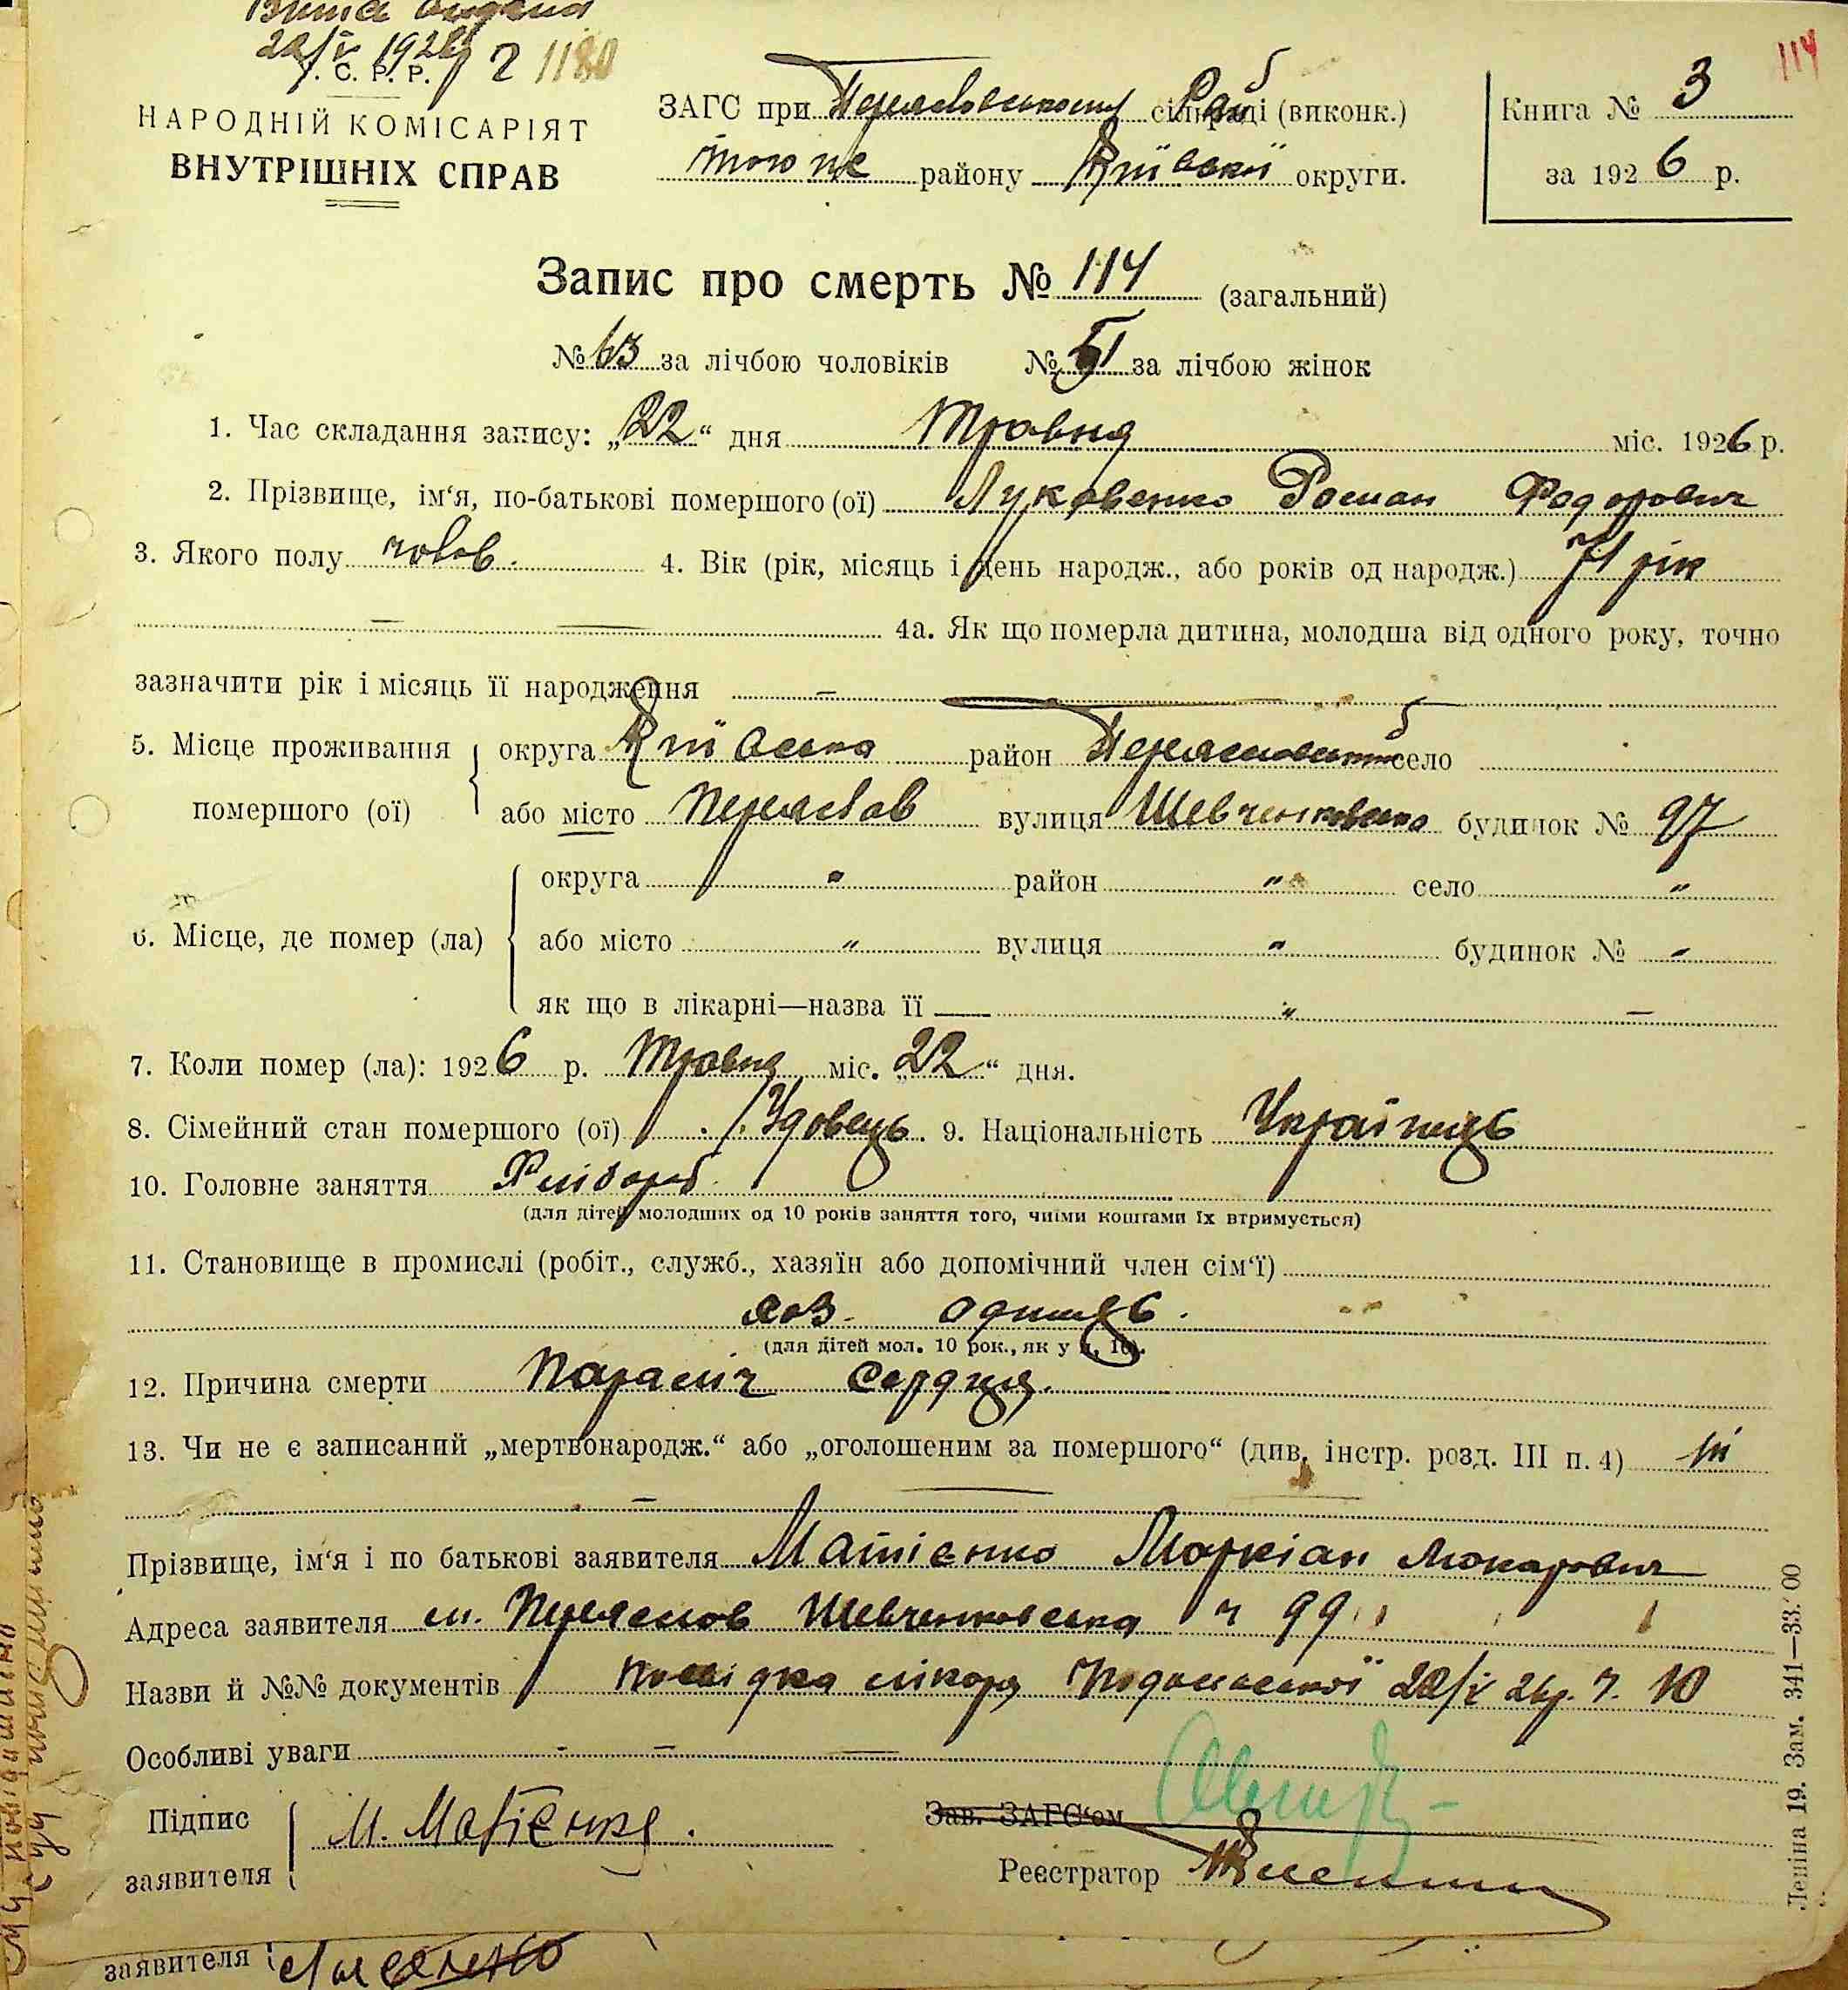 22/V 1926 р 2 1180
У. С. Р. Р.
114
НАРОДНІЙ КОМІСАРІЯТ
ВНУТРІШНІХ СПРАВ
ЗАГС при Переяславському Рай сільраді (виконк.)
того ж району Київської округи.
Книга № 3
за 1926 р.
Запис про смерть № 114 (загальний)
№ 63 за лічбою чоловіків № 51 за лічбою жінок
1. Час складання запису: „22“ дня Травня міс. 1926 р.
2. Прізвище, ім‘я, по-батькові помершого (ої) Луковенко Роман Федорович
3. Якого полу чолов. 4. Вік (рік, місяць і день народж., або років од народж.) 71 рік
4а. Як що померла дитина, молодша від одного року, точно
зазначити рік і місяць її народження —
5. Місце проживання помершого (ої) округа Київська район Переяславський село
або місто Переяслав вулиця Шевченківська будинок № 97
6. Місце, де помер (ла) округа " район " село "
або місто " вулиця " будинок № "
як що в лікарні—назва її — " —
7. Коли помер (ла): 1926 р. Травня міс. „22“ дня.
8. Сімейний стан помершого (ої) Удовець. 9. Національність Українець
10. Головне заняття Хлібороб
(для дітей молодших од 10 років заняття того, чиїми коштами їх втримується)
11. Становище в промислі (робіт., служб., хазяїн або допомічний член сім‘ї)
хаз. одинець.
(для дітей мол. 10 рок., як у п. 10).
12. Причина смерти Параліч серця.
13. Чи не є записаний „мертвонародж.“ або „оголошеним за помершого“ (див. інстр. розд. III п. 4) ні
Прізвище, ім‘я і по батькові заявителя Матієнко Маркіан Макарович
Адреса заявителя м. Переяслов Шевченковська ч 99
Назви й №№ документів Посвідка лікаря 22/V 26р. ч. 10
Особливі уваги - — —
Підпис заявителя М. Матієнко.
Зав. ЗАГС‘ом
Реєстратор
Леніна 19. Зам. 341—33.
заявителя